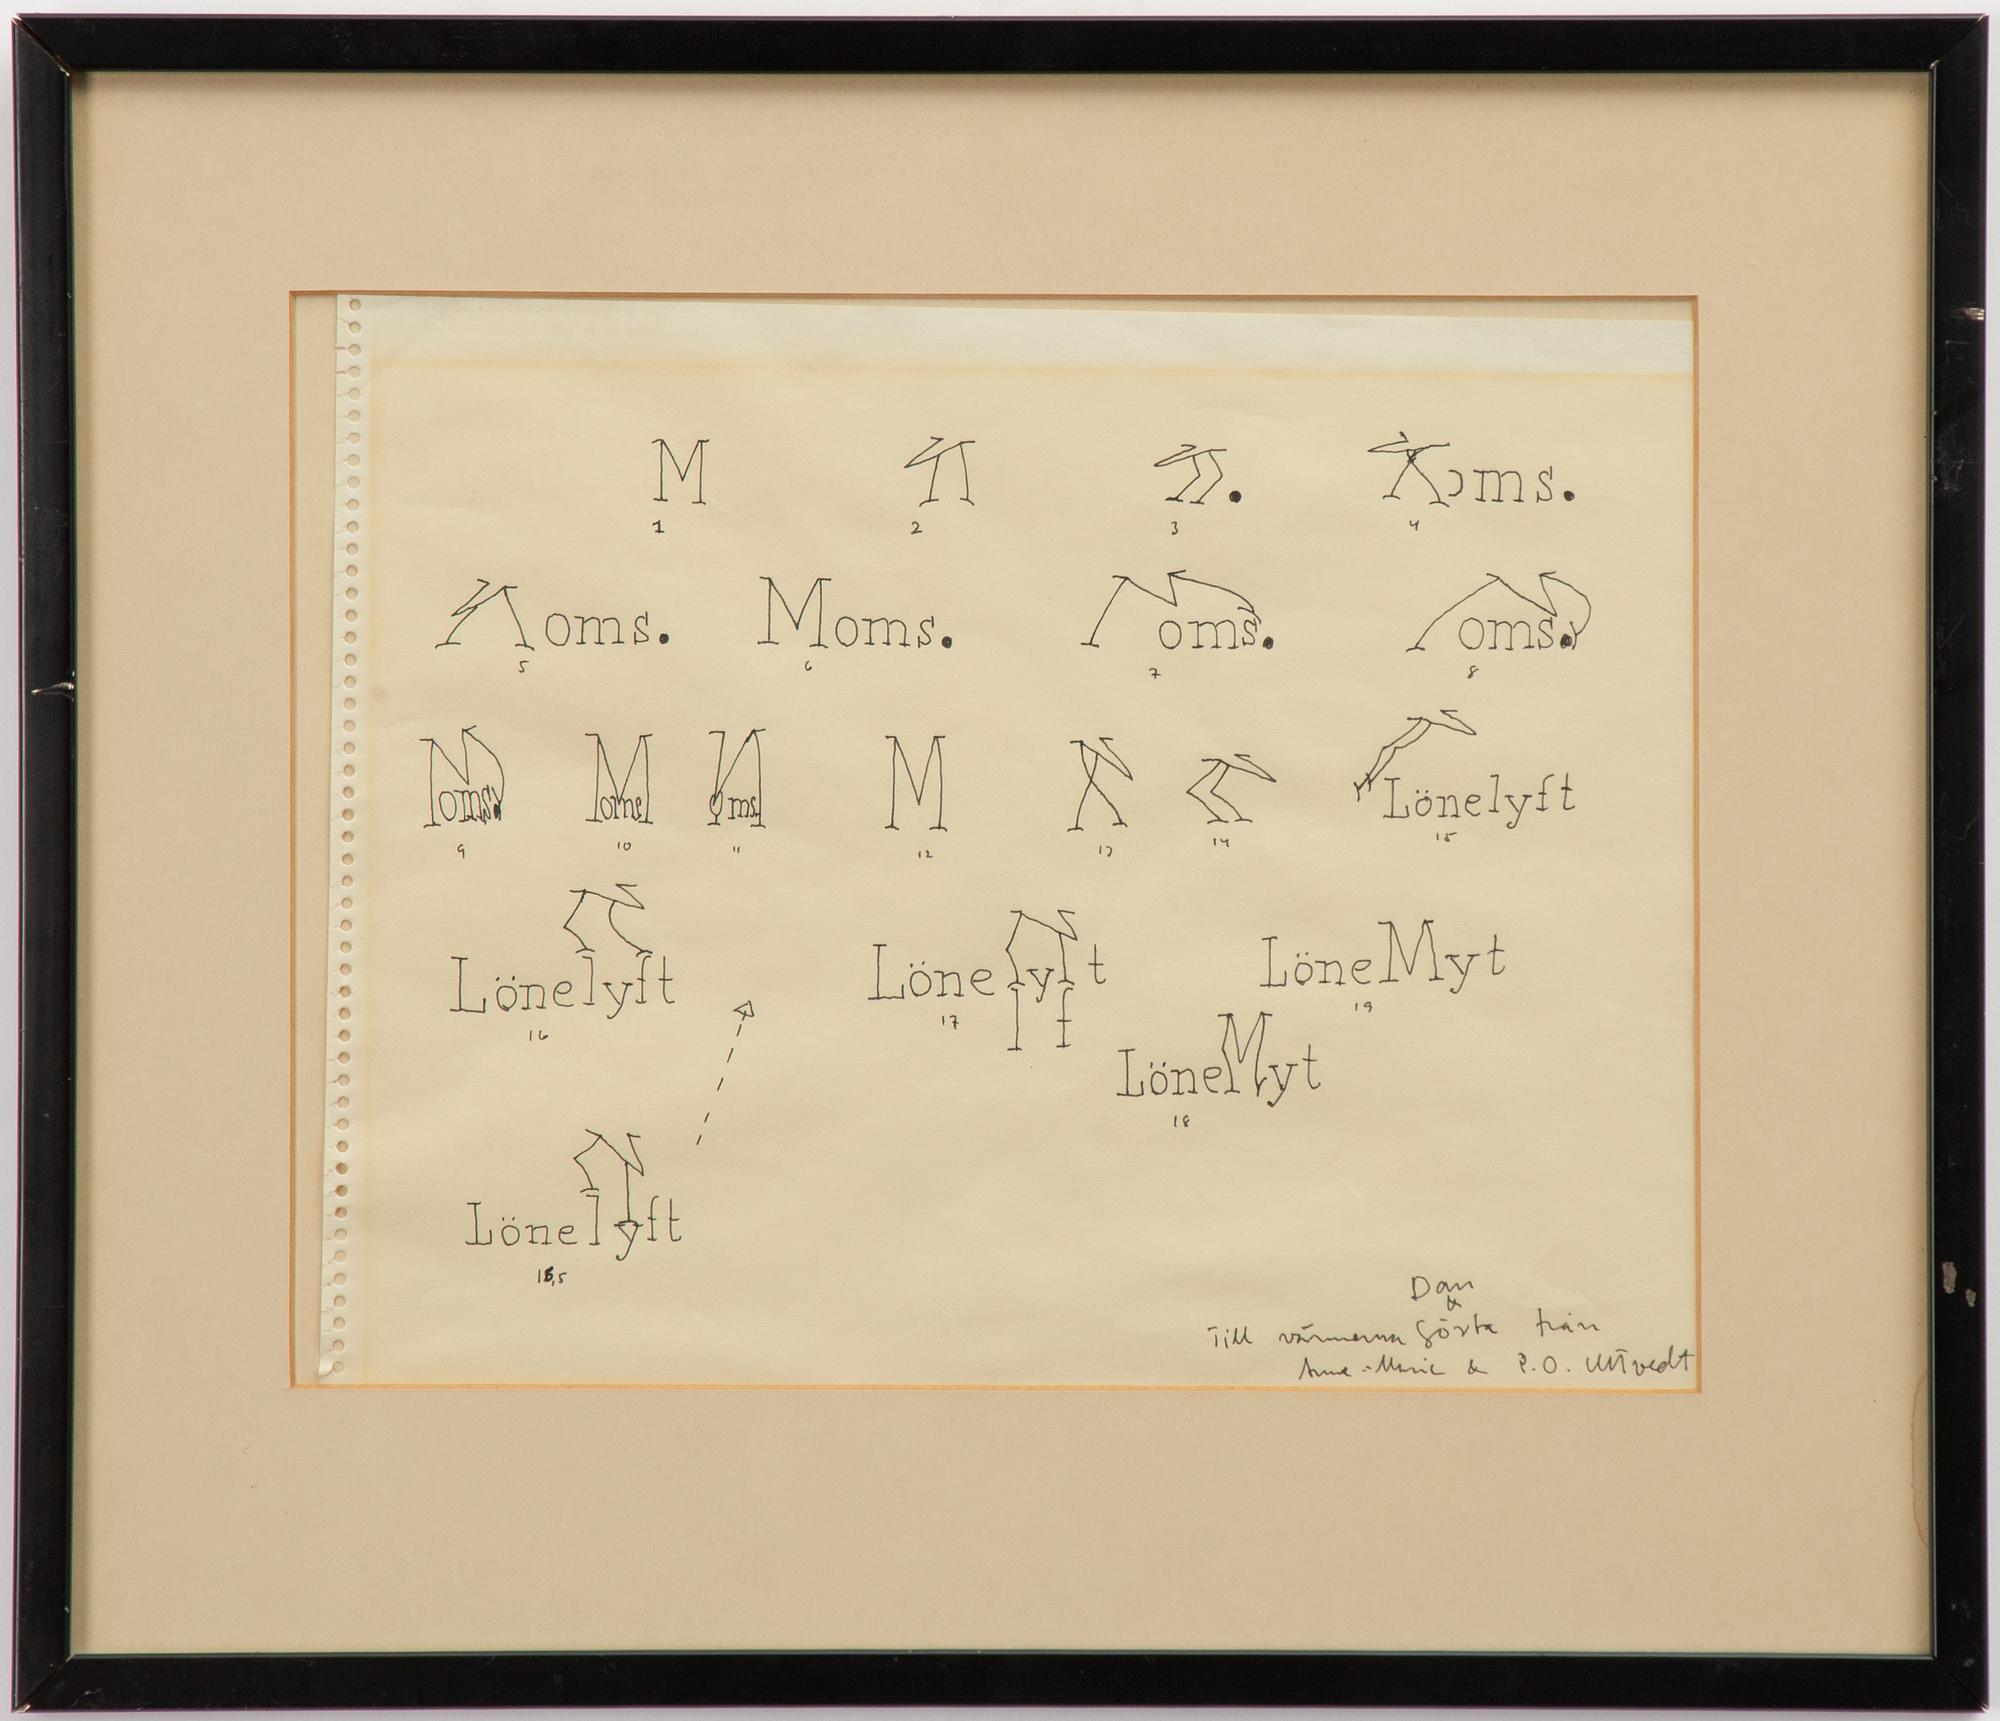 M
1
2
3
oms.
4
oms.
5
Moms.
6
oms.
7
oms.
8
Moms.
9
Moms
10
oms
11
M
12
13
14
Lönelyft
15
Lönelyft
16
Lönelyft
l f
17
LöneMyt
19
LöneMyt
18
Lönelyft
15,5
Dan
&
Till vännerna Gösta från
Anne-Marie & P.O. Ultvedt